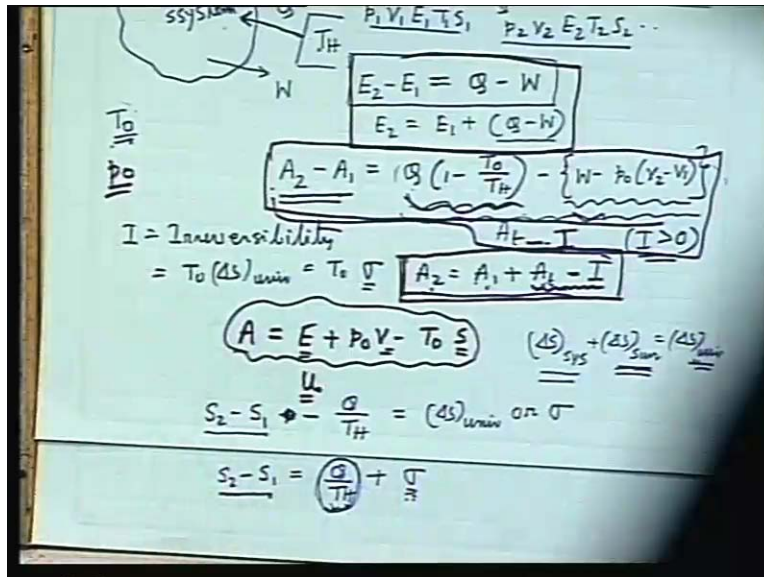 SSYSTEM
T_H
W
p1 V1 E1 T1 S1
p2 V2 E2 T2 S2 ..
E2 - E1 = Q - W
E2 = E1 + (Q - W)
T0
p0
A2 - A1 = Q (1 - T0/TH) - {W - p0 (V2 - V1)}
At - I (I > 0)
I = Irreversibility
= T0 (ΔS)univ = T0 σ
A2 = A1 + At - I
A = E + p0 V - T0 S
(ΔS)sys + (ΔS)surr = (ΔS)univ
U
S2 - S1 - Q/TH = (ΔS)univ or σ
S2 - S1 = Q/TH + σ